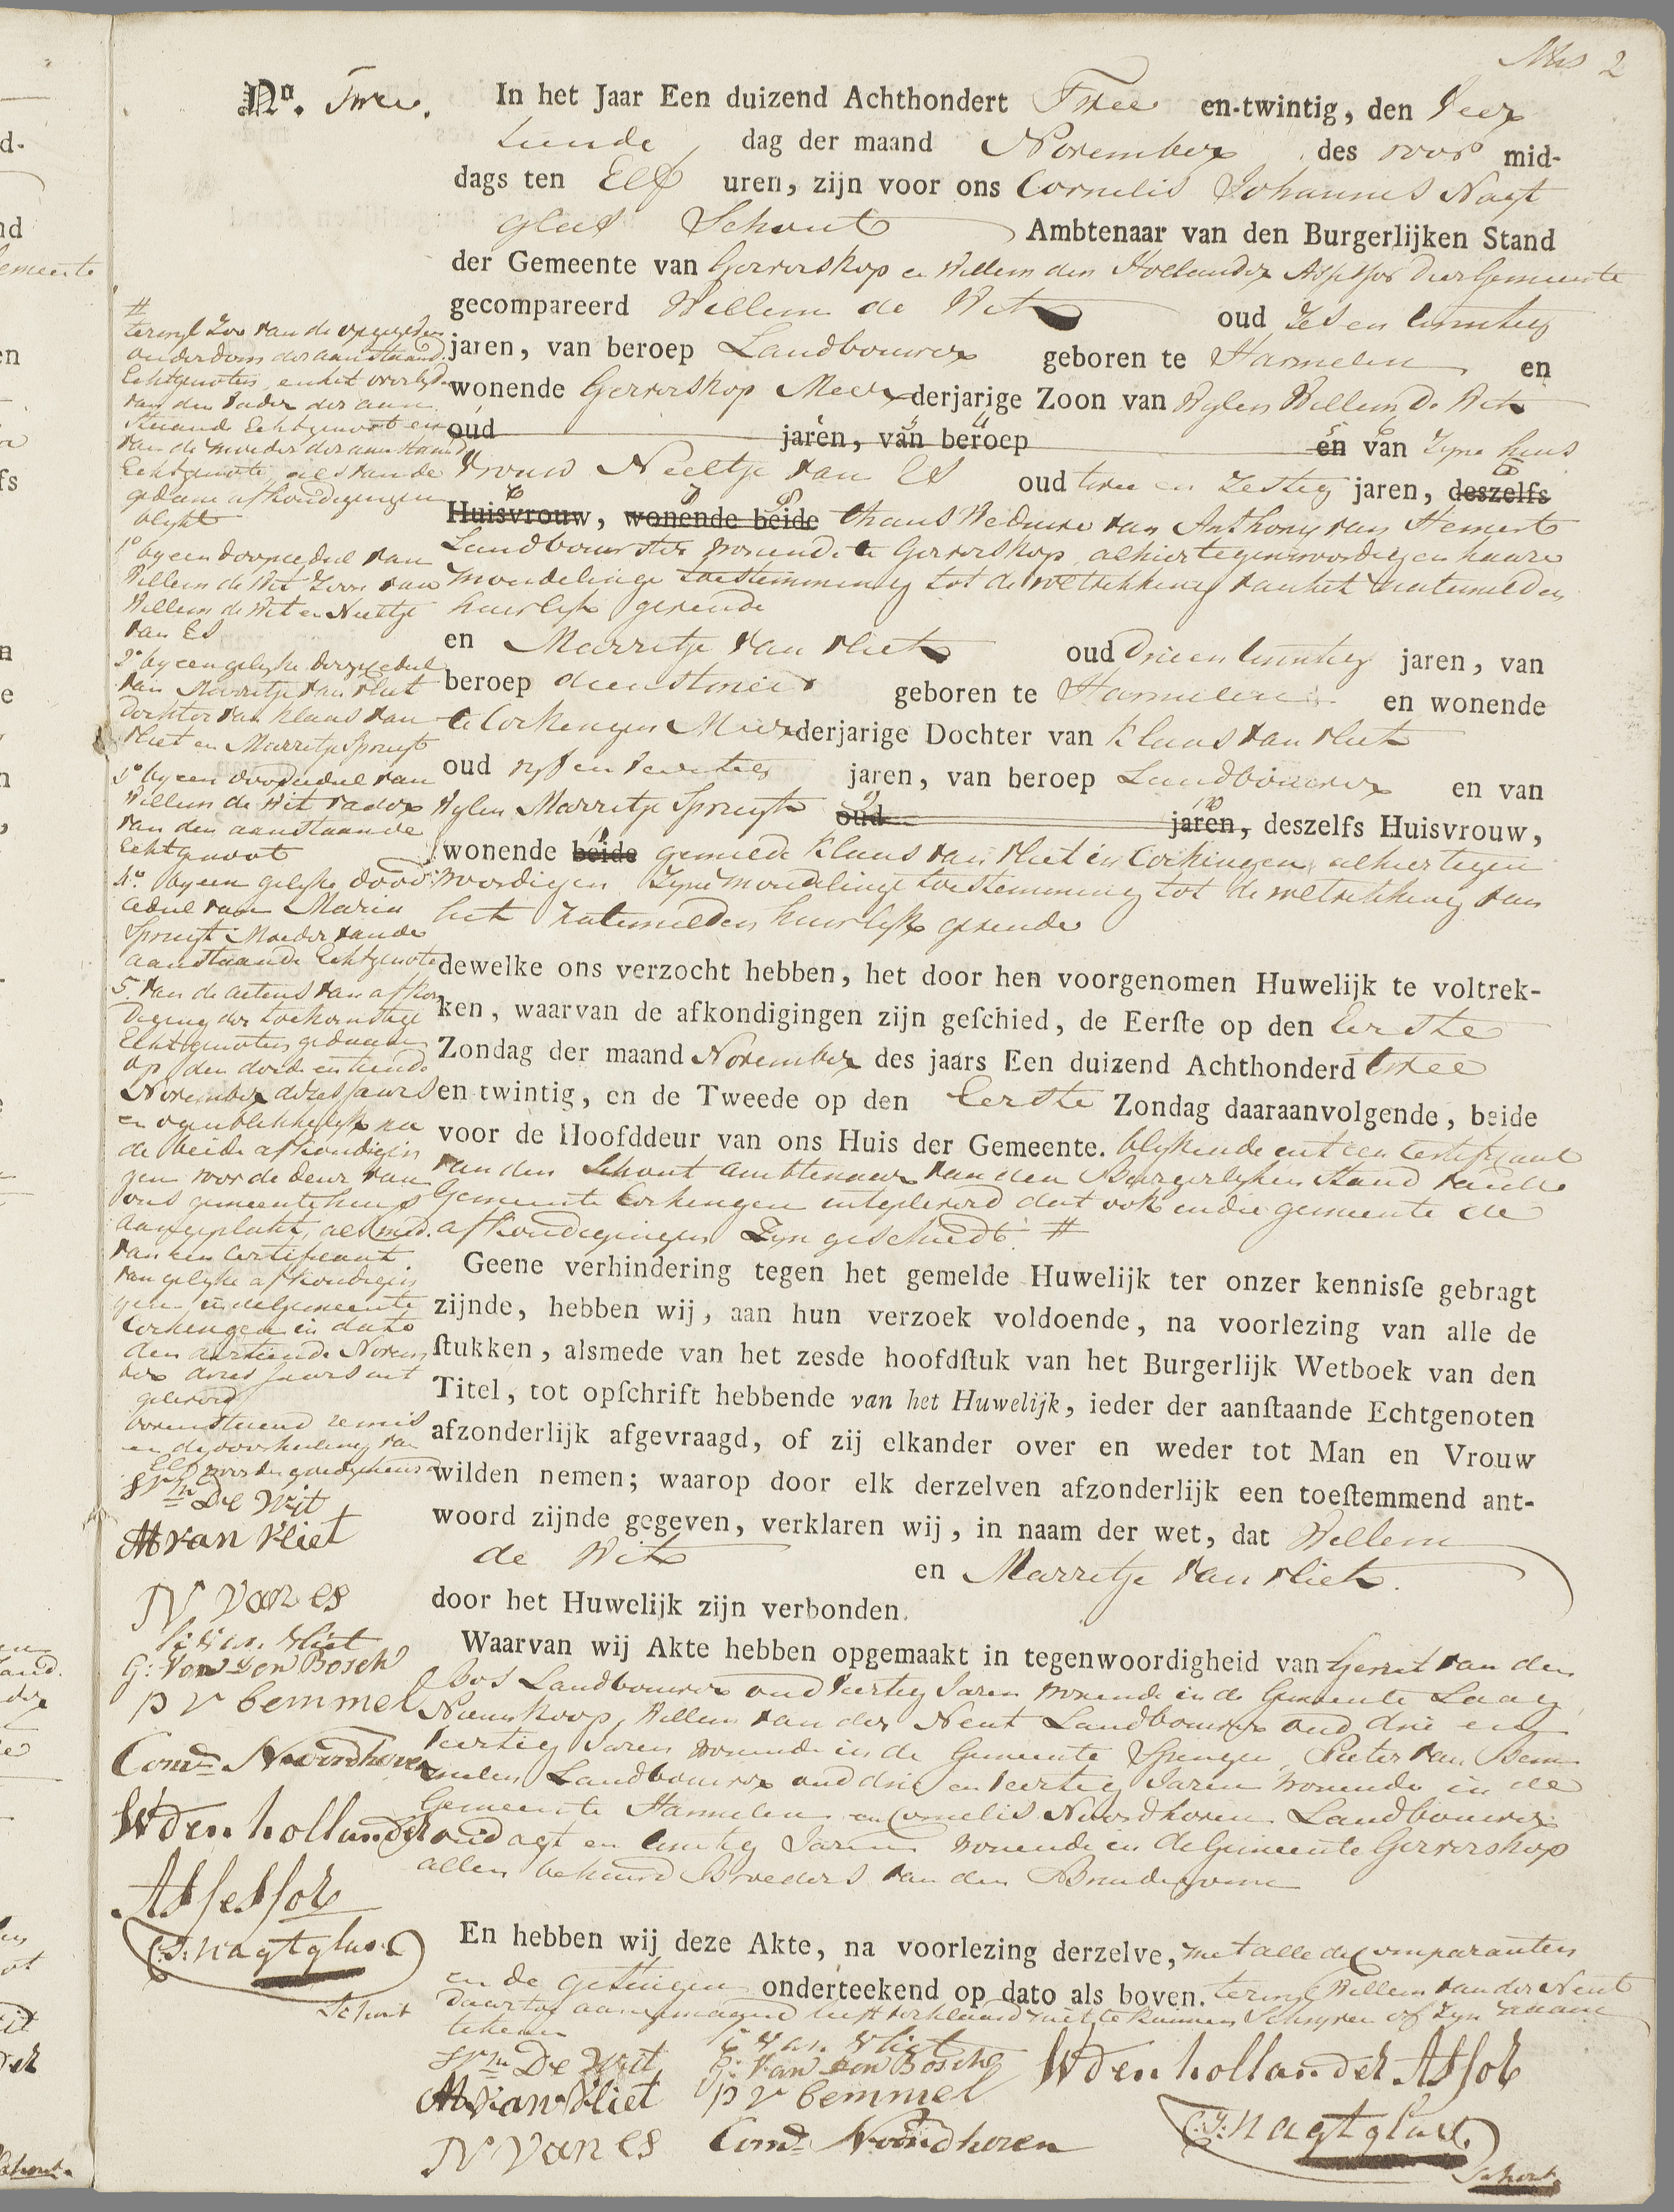 2
No. Twee.
In het Jaar Een duizend Achthondert Twee en-twintig, den Veer
tiende dag der maand November des voor mid-
dags ten Elf uren, zijn voor ons Cornelis Johannes Nagt
glas Schout Ambtenaar van den Burgerlijken Stand
der Gemeente van Gerverskop en Willem den Hollander Assessor dier Gemeente
gecompareerd Willem de Wit oud Zes en twintig
jaren, van beroep Landbouwer geboren te Harmelen en
wonende Gerverskop Meerderjarige Zoon van Wylen Willem De Wit
oud jaren, van beroep en van Zyne huis
vrouw Neeltje van Es oud twee en Zestig jaren, deszelfs
Huisvrouw, wonende beide thans Weduwe van Anthony van Hemert
Landbouwster wonende te Gerverskop alhier tegenwoordig en haare
mondelinge toestemming tot de voltrekking van het natemelden
huwlyk gevende
en Marretje van Vliet oud Drie en twintig jaren, van
beroep dienstmeid geboren te Harmelen en wonende
te Cockengen Meerderjarige Dochter van Klaas van Vliet
oud vyf en Veertig jaren, van beroep Landbouwer en van
Wylen Marretje Spruyt oud jaren, deszelfs Huisvrouw,
wonende beide gemelde Klaas van Vliet in Cockengen alhier tegen
woordig en Zyne mondelinge toestemming tot de voltrekking van
het natemelden huwlyk gevende
dewelke ons verzocht hebben, het door hen voorgenomen Huwelijk te voltrek-
ken, waarvan de afkondigingen zijn geschied, de Eerste op den Eerste
Zondag der maand November des jaars Een duizend Achthonderd twee
en twintig, en de Tweede op den Eerste Zondag daaraanvolgende, beide
voor de Hoofddeur van ons Huis der Gemeente. blykende uit een Certificaat
van den Schout Ambtenaar van den Burgerlyken Stand van de
Gemeente Cockengen uitgeleverd dat ook in die gemeente de
afkondigingen Zyn geschiedt #
Geene verhindering tegen het gemelde Huwelijk ter onzer kennisse gebragt
zijnde, hebben wij, aan hun verzoek voldoende, na voorlezing van alle de
stukken, alsmede van het zesde hoofdstuk van het Burgerlijk Wetboek van den
Titel, tot opschrift hebbende van het Huwelijk, ieder der aanstaande Echtgenoten
afzonderlijk afgevraagd, of zij elkander over en weder tot Man en Vrouw
wilden nemen; waarop door elk derzelven afzonderlijk een toestemmend ant-
woord zijnde gegeven, verklaren wij, in naam der wet, dat Willem
de Wit en Marretje van Vliet.
door het Huwelijk zijn verbonden.
Waarvan wij Akte hebben opgemaakt in tegenwoordigheid van Gerrit van den
Bos Landbouwer oud Veertig Jaren wonende in de Gemeente Laag
Nieuwkoop, Willem van der Neut Landbouwer oud drie en
veertig Jaren wonende in de Gemeente Spengen, Pieter van Bem
melen Landbouwer oud drie en veertig Jaren wonende in de
Gemeente Harmelen en Cornelis Noordhoven Landbouwer
oud agt en twintig Jaren wonende in de Gemeente Gerverskop
allen behuwd Broeders van den Bruidegom
En hebben wij deze Akte, na voorlezing derzelve, met alle de Comparanten
en de getuigen onderteekend op dato als boven. terwyl Willem van der Neut
daartoe aangemaand heeft verklaard niet te kunnen Schryven of Zyn naam
tekenen
Wm De Wit
M van Vliet
N van es
k van Vliet
G: Van den Bosch
p v bemmel
Corns Noordhoven
W den hollander Assor
C:J: nagtglas
Schout
#
terwyl Zoo van de opgegeven
ouderdom der aanstaande
Echtgenoten, en het overlyden
van den Vader der aan
staande Echtgenoot en
van de moeder der aanstaande
Echtgenote, als van de
gedane afkondigingen
blykt
1o by een doopcedul van
Willem de Wit Zoon van
Willem de Wit en Neeltje
van Es
2o by een gelyke doopcedul
van Marretje van Vliet
Dochter van Klaas van
Vliet en Marretje Spruyt
3o by een doodcedul van
Willem de Wit vader
van den aanstaande
Echtgenoot
4o by een gelyke dood
cedul van Maria
Spruyt Moeder van de
aanstaande Echtgenote
5. van de actens van afkon
diging der toekomstige
Echtgenoten gedaan
op den derde en tiende
November dezes Jaars
en ogenblikkelyk na
de beide afkondigin
gen voor de deur van
ons gemeentehuis
aangeplakt, als mede
van een Certificaat
van gelyke afkondigin
gen in de Gemeente
Cockengen in dato
den dertiende Novem
ber dezes Jaars uit
geleverd
bovenstaand renvoi
en de doorhaling van
woorden goedgekeurd
Wm De Wit
M van Vliet
N van es
k van Vliet
G: Van den Bosch
p v bemmel
Corns Noordhoven
W den hollander
Assessor
C:J: nagtglas
Schout